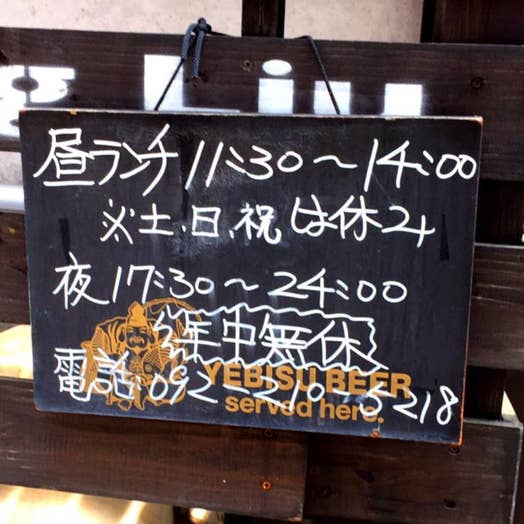 g Liu
昼ランチ 11:30〜14:00
※土.日.祝は休み
夜17:30〜24:00
年中無休
電話 092-210-5218
YEBISU BEER
served here.